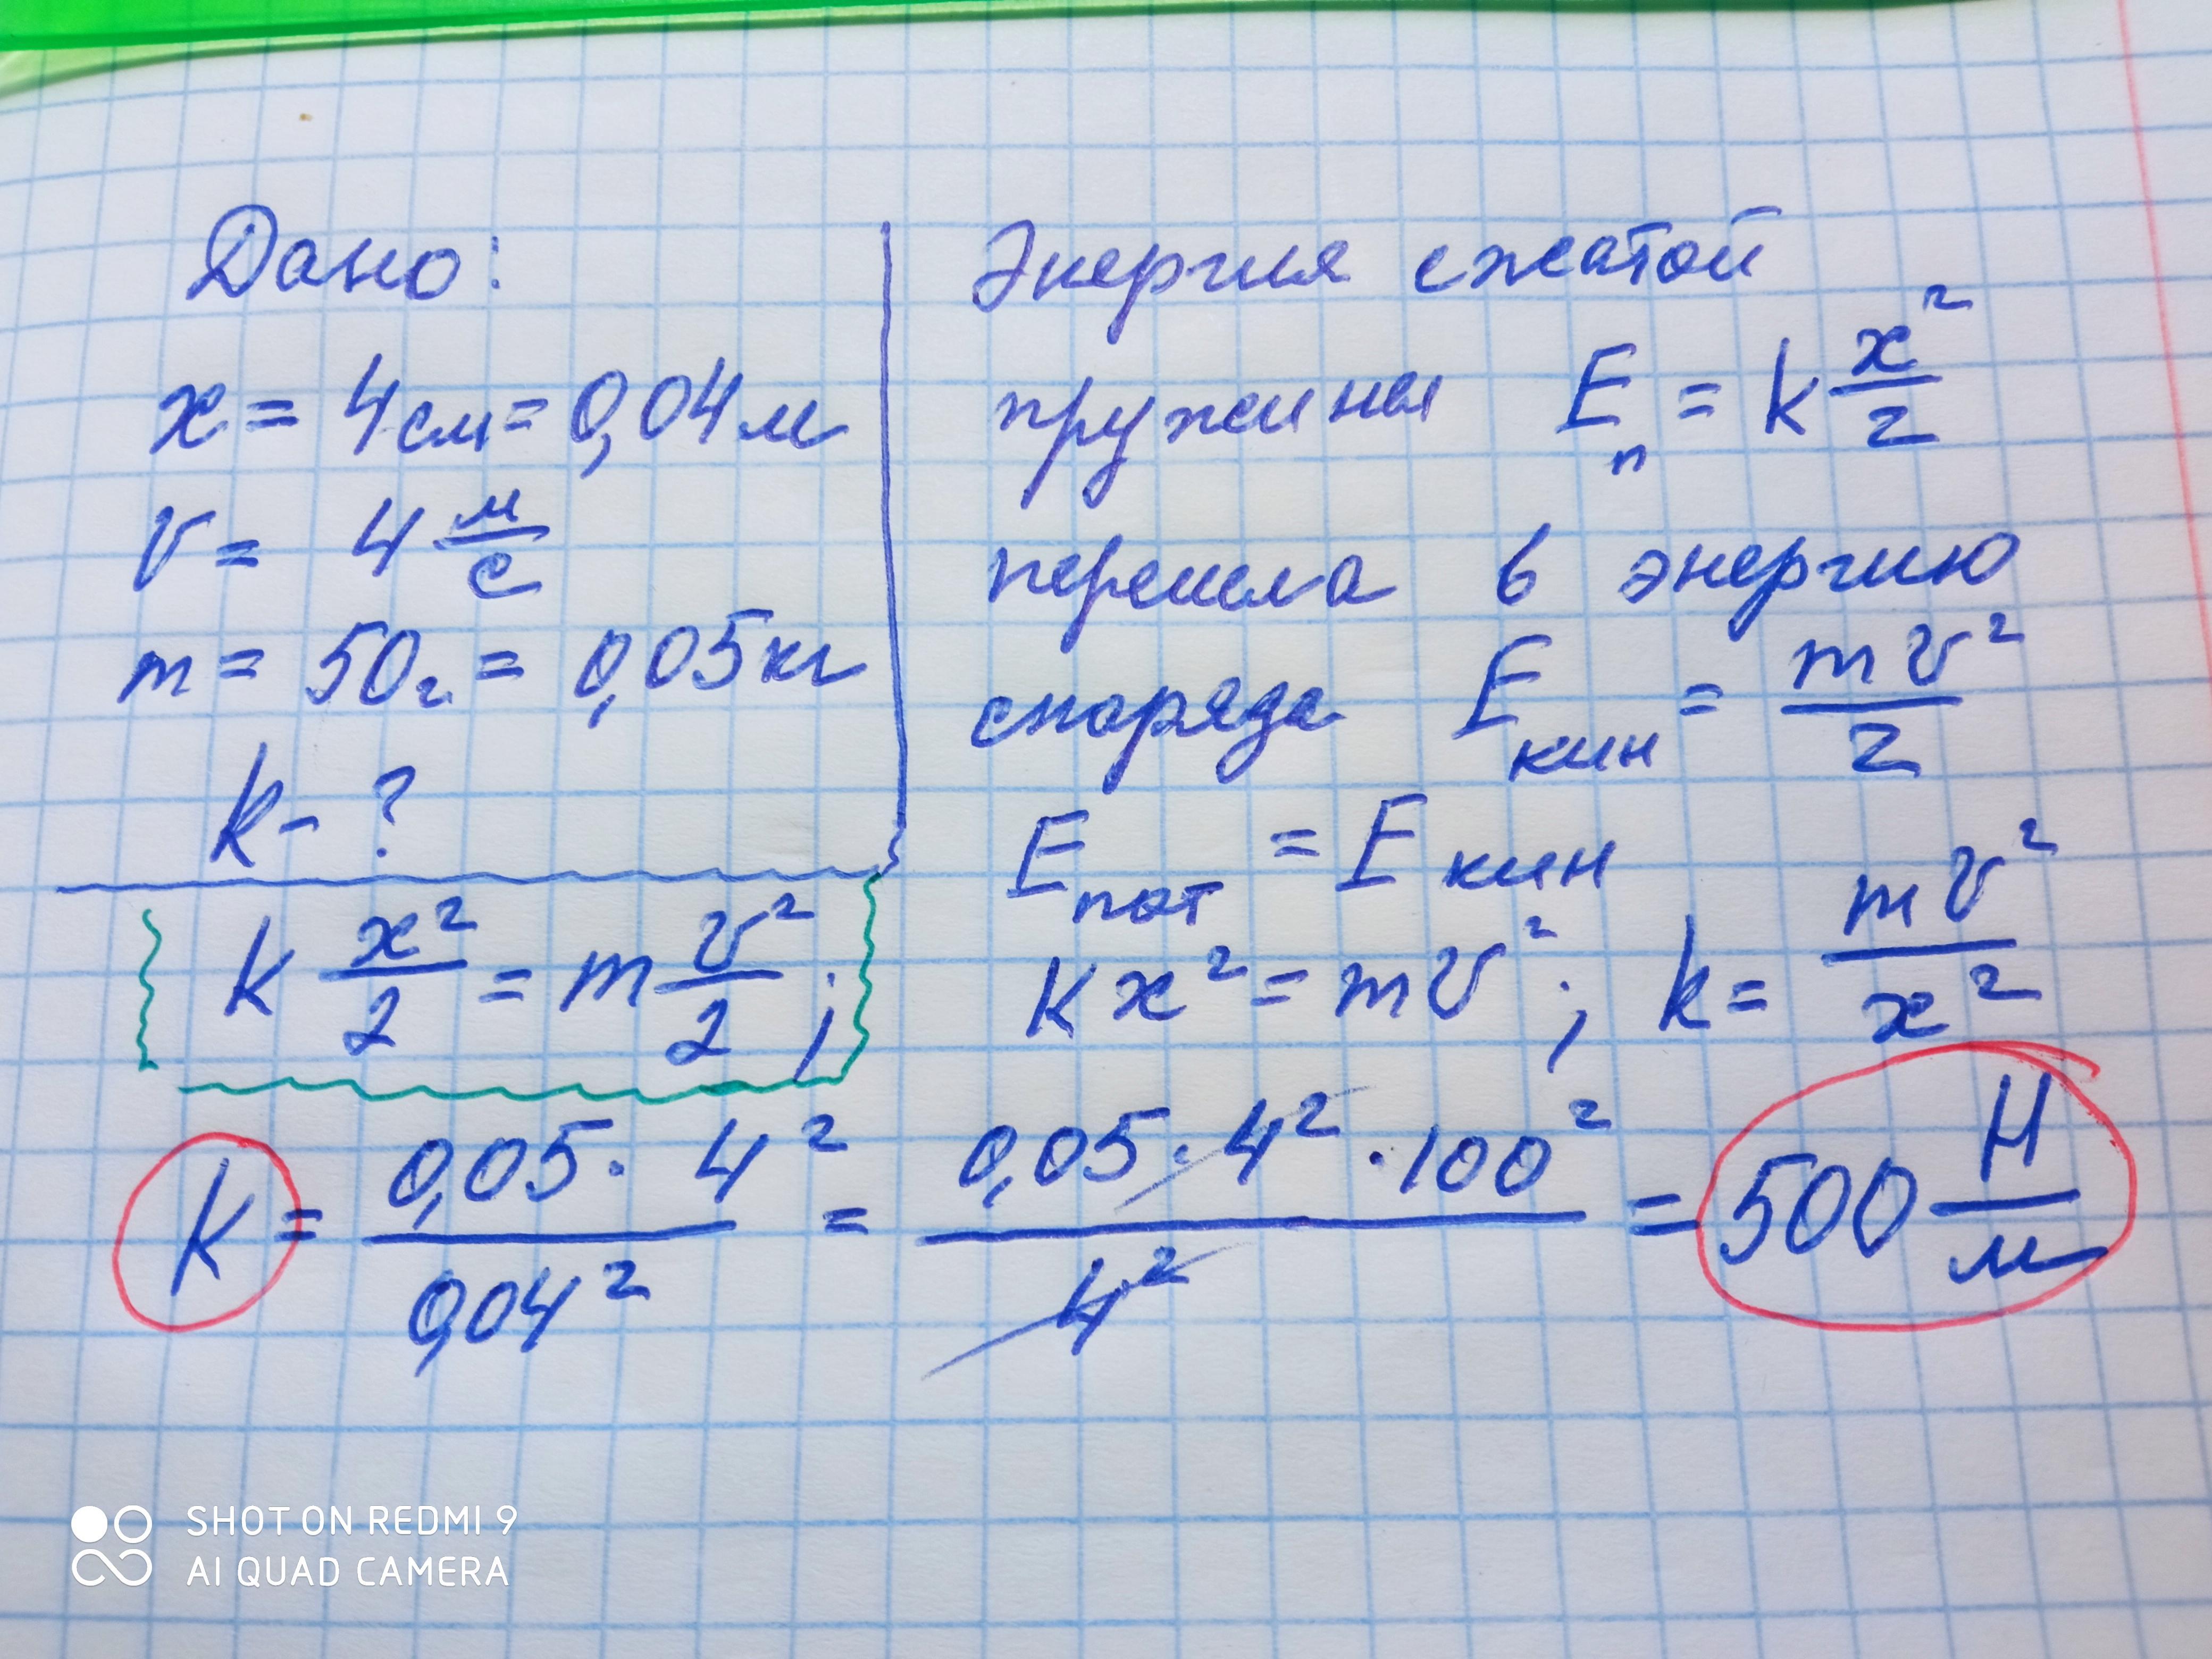 Дано:
x = 4 см = 0,04 м
v = 4 м/с
m = 50 г = 0,05 кг
k - ?
k x²/2 = m v²/2 ;
Энергия сжатой
пружины Eп = k x²/2
перешла в энергию
снаряда Eкин = mv²/2
Eпот = Eкин
kx² = mv² ; k = mv²/x²
k = 0,05 · 4² / 0,04² = 0,05 · 4² · 100² / 4² = 500 Н/м
SHOT ON REDMI 9
AI QUAD CAMERA